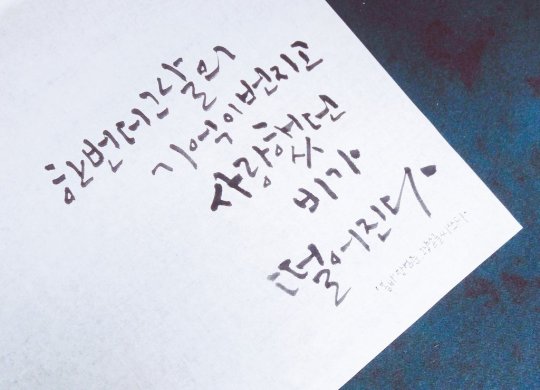 한번더 그날의
기억이 번지고
사랑했던
비가
떨어진다.